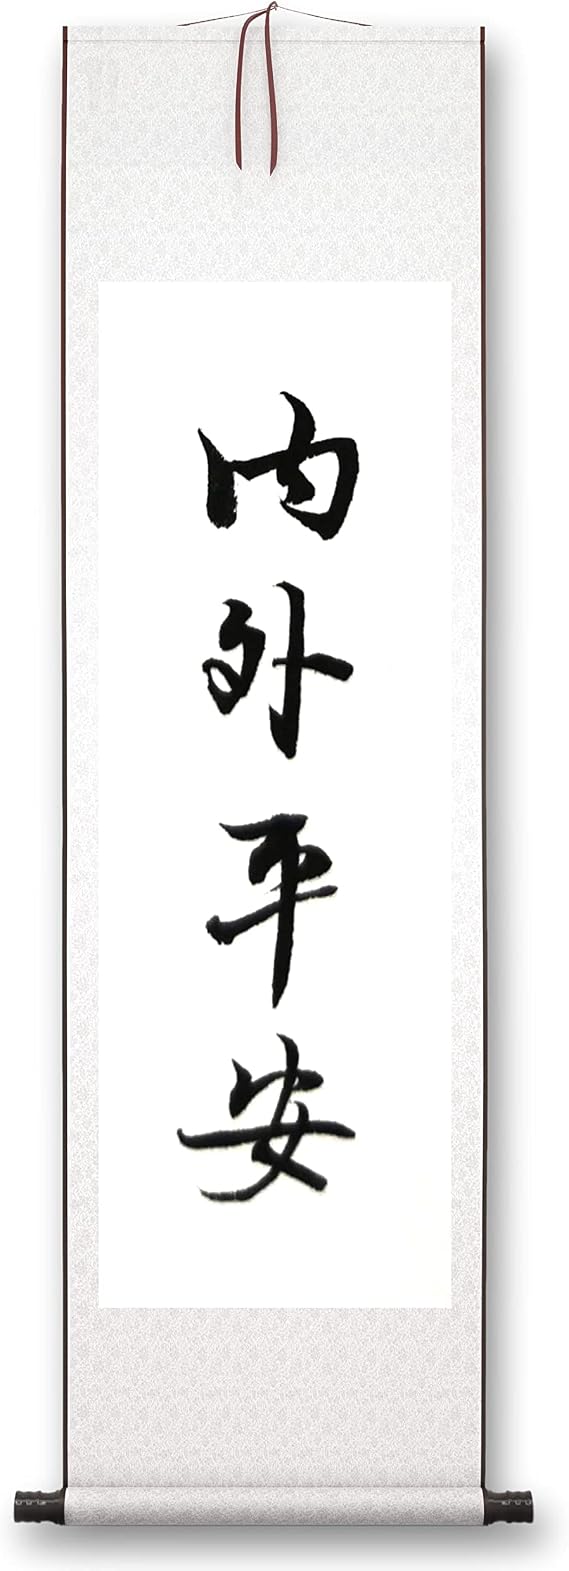 内外平安